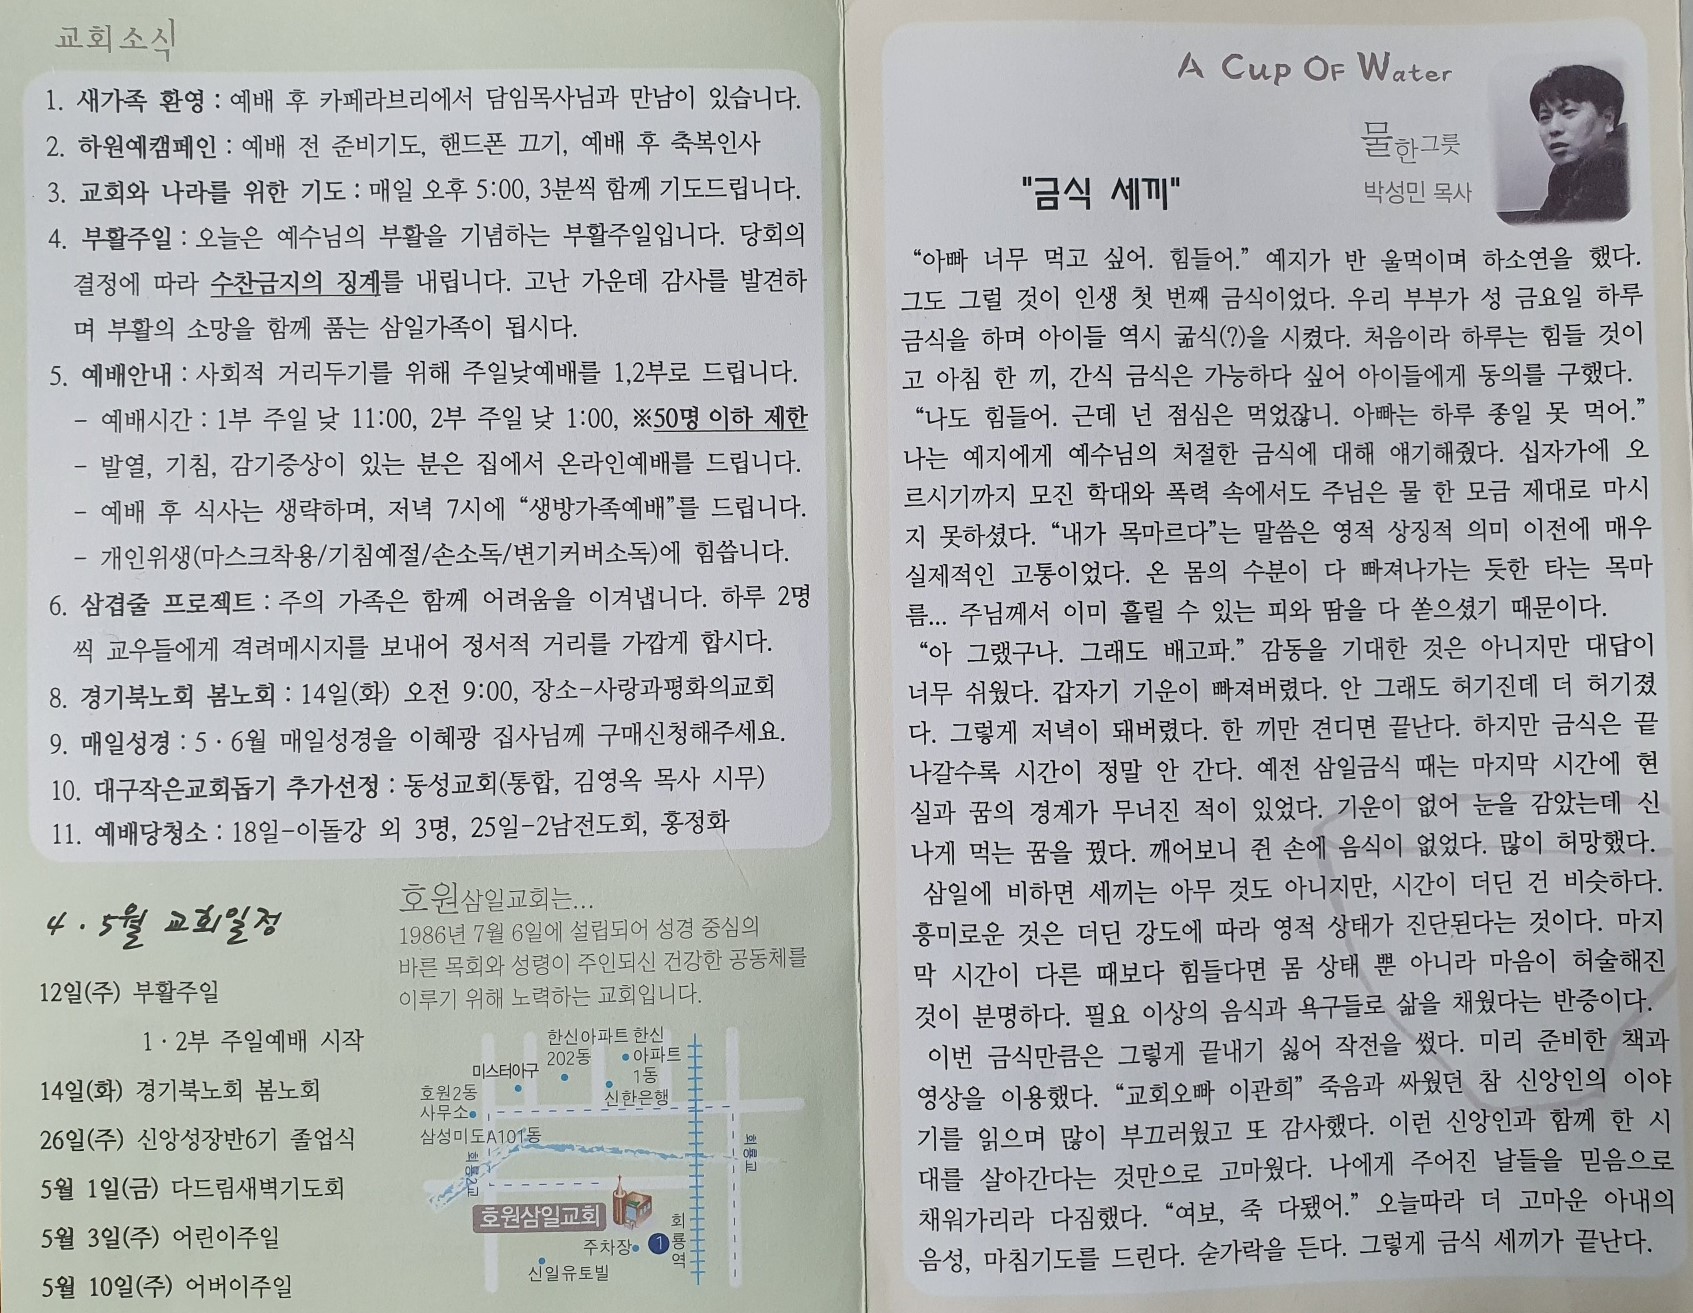 교회소식
1. 새가족 환영 : 예배 후 카페라브리에서 담임목사님과 만남이 있습니다.
2. 하원예캠페인 : 예배 전 준비기도, 핸드폰 끄기, 예배 후 축복인사
3. 교회와 나라를 위한 기도 : 매일 오후 5:00, 3분씩 함께 기도드립니다.
4. 부활주일 : 오늘은 예수님의 부활을 기념하는 부활주일입니다. 당회의
결정에 따라 수찬금지의 징계를 내립니다. 고난 가운데 감사를 발견하
며 부활의 소망을 함께 품는 삼일가족이 됩시다.
5. 예배안내 : 사회적 거리두기를 위해 주일낮예배를 1,2부로 드립니다.
- 예배시간 : 1부 주일 낮 11:00, 2부 주일 낮 1:00, ※50명 이하 제한
- 발열, 기침, 감기증상이 있는 분은 집에서 온라인예배를 드립니다.
- 예배 후 식사는 생략하며, 저녁 7시에 “생방가족예배”를 드립니다.
- 개인위생(마스크착용/기침예절/손소독/변기커버소독)에 힘씁니다.
6. 삼겹줄 프로젝트 : 주의 가족은 함께 어려움을 이겨냅니다. 하루 2명
씩 교우들에게 격려메시지를 보내어 정서적 거리를 가깝게 합시다.
8. 경기북노회 봄노회 : 14일(화) 오전 9:00, 장소-사랑과평화의교회
9. 매일성경 : 5 · 6월 매일성경을 이혜광 집사님께 구매신청해주세요.
10. 대구작은교회돕기 추가선정 : 동성교회(통합, 김영옥 목사 시무)
11. 예배당청소 : 18일-이돌강 외 3명, 25일-2남전도회, 홍정화
4 · 5월 교회일정
12일(주) 부활주일
1 · 2부 주일예배 시작
14일(화) 경기북노회 봄노회
26일(주) 신앙성장반6기 졸업식
5월 1일(금) 다드림새벽기도회
5월 3일(주) 어린이주일
5월 10일(주) 어버이주일
호원삼일교회는...
1986년 7월 6일에 설립되어 성경 중심의
바른 목회와 성령이 주인되신 건강한 공동체를
이루기 위해 노력하는 교회입니다.
한신아파트
202동
한신
아파트
1동
미스터아구
신한은행
호원2동
사무소
삼성미도A101동
회룡2교
회룡교
호원삼일교회
주차장
1
회룡역
신일유토빌
A Cup Of Water
물한그릇
박성민 목사
"금식 세끼"
“아빠 너무 먹고 싶어. 힘들어.” 예지가 반 울먹이며 하소연을 했다.
그도 그럴 것이 인생 첫 번째 금식이었다. 우리 부부가 성 금요일 하루
금식을 하며 아이들 역시 굶식(?)을 시켰다. 처음이라 하루는 힘들 것이
고 아침 한 끼, 간식 금식은 가능하다 싶어 아이들에게 동의를 구했다.
“나도 힘들어. 근데 넌 점심은 먹었잖니. 아빠는 하루 종일 못 먹어.”
나는 예지에게 예수님의 처절한 금식에 대해 얘기해줬다. 십자가에 오
르시기까지 모진 학대와 폭력 속에서도 주님은 물 한 모금 제대로 마시
지 못하셨다. “내가 목마르다”는 말씀은 영적 상징적 의미 이전에 매우
실제적인 고통이었다. 온 몸의 수분이 다 빠져나가는 듯한 타는 목마
름... 주님께서 이미 흘릴 수 있는 피와 땀을 다 쏟으셨기 때문이다.
“아 그랬구나. 그래도 배고파.” 감동을 기대한 것은 아니지만 대답이
너무 쉬웠다. 갑자기 기운이 빠져버렸다. 안 그래도 허기진데 더 허기졌
다. 그렇게 저녁이 돼버렸다. 한 끼만 견디면 끝난다. 하지만 금식은 끝
나갈수록 시간이 정말 안 간다. 예전 삼일금식 때는 마지막 시간에 현
실과 꿈의 경계가 무너진 적이 있었다. 기운이 없어 눈을 감았는데 신
나게 먹는 꿈을 꿨다. 깨어보니 쥔 손에 음식이 없었다. 많이 허망했다.
삼일에 비하면 세끼는 아무 것도 아니지만, 시간이 더딘 건 비슷하다.
흥미로운 것은 더딘 강도에 따라 영적 상태가 진단된다는 것이다. 마지
막 시간이 다른 때보다 힘들다면 몸 상태 뿐 아니라 마음이 허술해진
것이 분명하다. 필요 이상의 음식과 욕구들로 삶을 채웠다는 반증이다.
이번 금식만큼은 그렇게 끝내기 싫어 작전을 썼다. 미리 준비한 책과
영상을 이용했다. “교회오빠 이관희” 죽음과 싸웠던 참 신앙인의 이야
기를 읽으며 많이 부끄러웠고 또 감사했다. 이런 신앙인과 함께 한 시
대를 살아간다는 것만으로 고마웠다. 나에게 주어진 날들을 믿음으로
채워가리라 다짐했다. “여보, 죽 다됐어.” 오늘따라 더 고마운 아내의
음성, 마침기도를 드린다. 숟가락을 든다. 그렇게 금식 세끼가 끝난다.